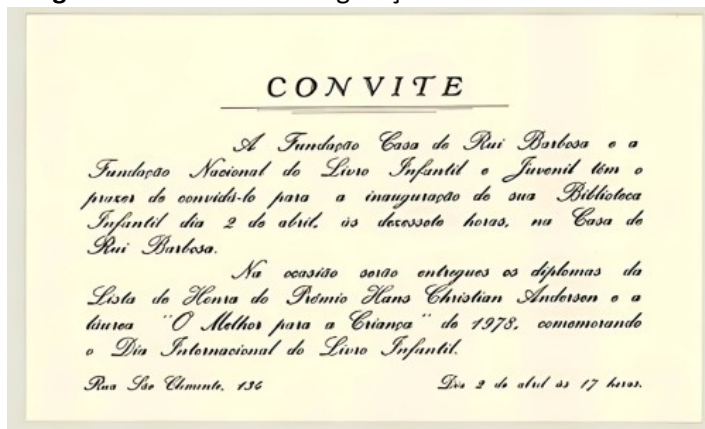 CONVITE
A Fundação Casa de Rui Barbosa e a
Fundação Nacional do Livro Infantil e Juvenil têm o
prazer de convidá-lo para a inauguração de sua Biblioteca
Infantil dia 2 de abril, às dezessete horas, na Casa de
Rui Barbosa.
Na ocasião serão entregues os diplomas da
Lista de Honra do Prêmio Hans Christian Andersen e a
láurea "O Melhor para a Criança" de 1978, comemorando
o Dia Internacional do Livro Infantil.
Rua São Clemente, 134
Dia 2 de abril às 17 horas.